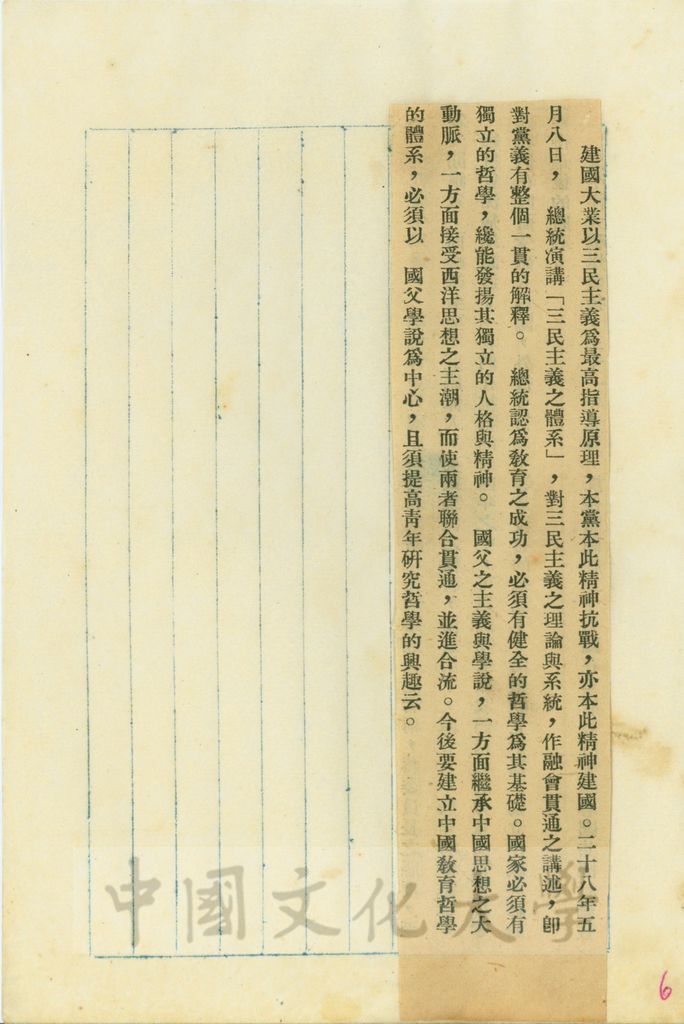 建國大業以三民主義爲最高指導原理，本黨本此精神抗戰，亦本此精神建國。二十八年五
月八日，　總統演講「三民主義之體系」，對三民主義之理論與系統，作融會貫通之講述，卽
對黨義有整個一貫的解釋。　總統認爲敎育之成功，必須有健全的哲學爲其基礎。國家必須有
獨立的哲學，纔能發揚其獨立的人格與精神。　國父之主義與學說，一方面繼承中國思想之大
動脈，一方面接受西洋思想之主潮，而使兩者聯合貫通，並進合流。今後要建立中國敎育哲學
的體系，必須以　國父學說爲中心，且須提高靑年研究哲學的興趣云。
中國文化大學
6